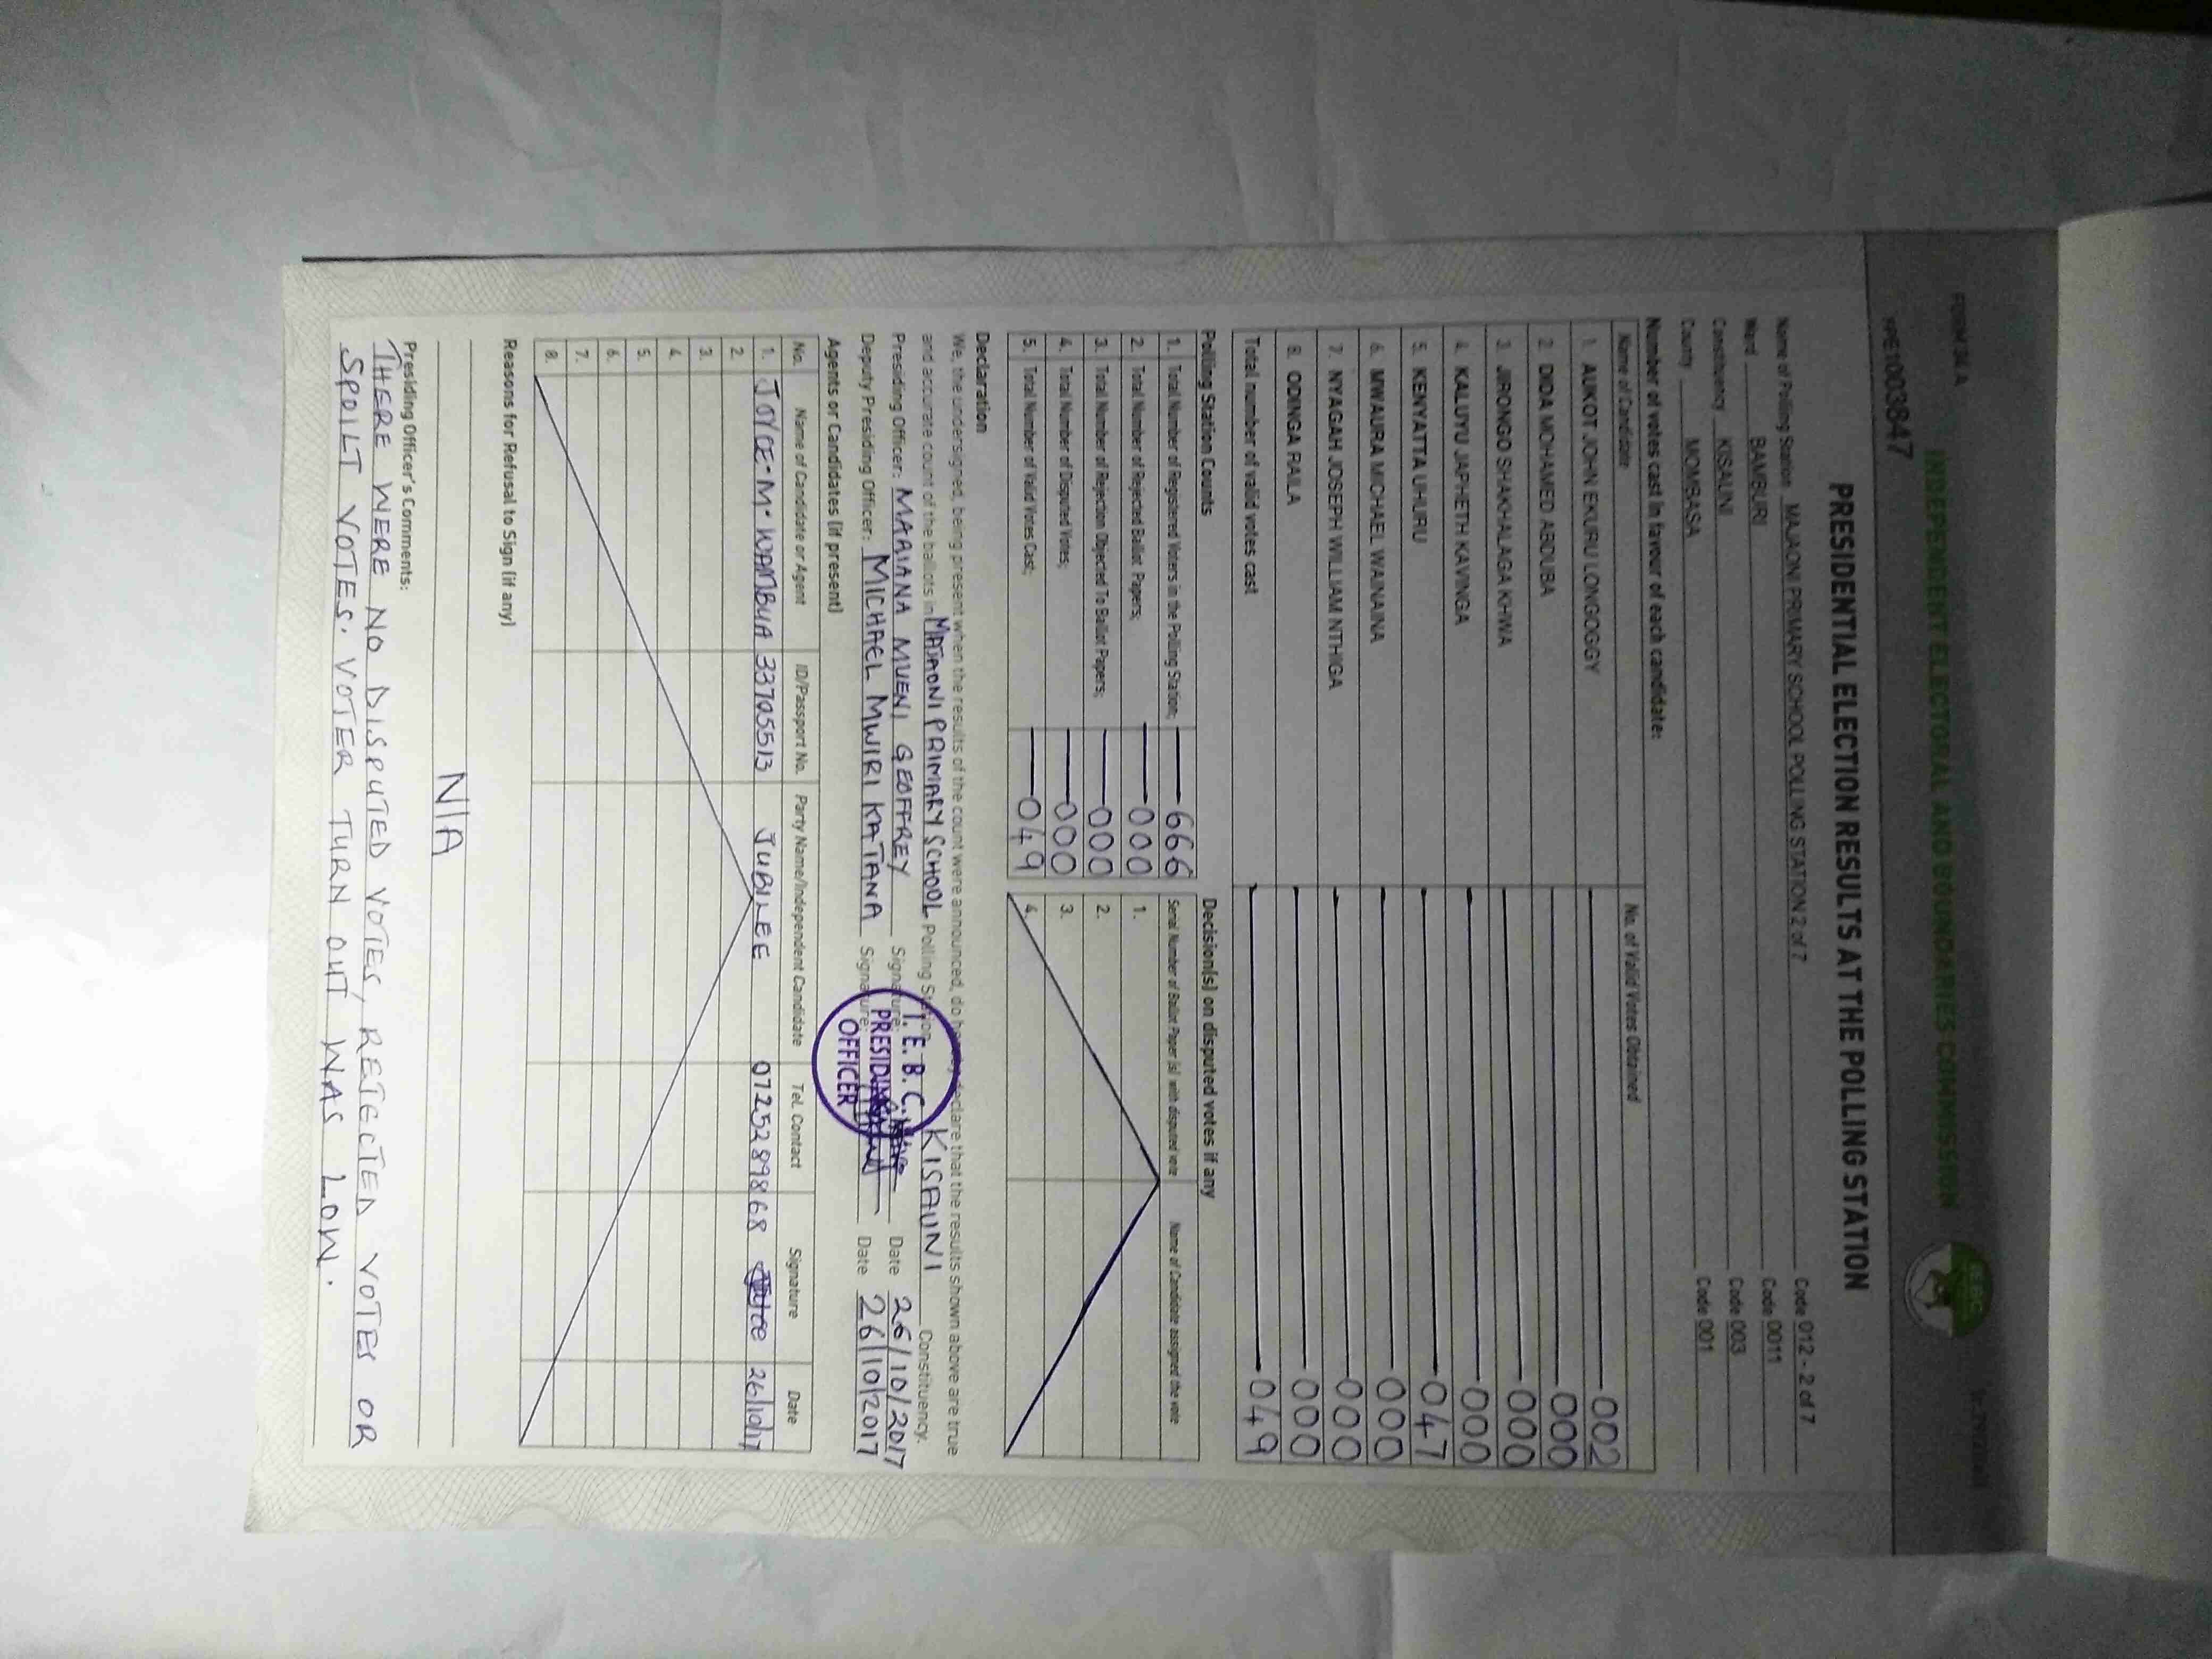 FORM 34 A
INDEPENDENT ELECTORAL AND BOUNDARIES COMMISSION
IEBC
PRESIDENTIAL ELECTION RESULTS AT THE POLLING STATION
Name of Polling Station MAJAONI PRIMARY SCHOOL POLLING STATION 2 of 7 Code 012 - 2 of 7
Ward BAMBURI Code 0011
Constituency KISAUNI Code 003
County MOMBASA Code 001
Number of votes cast in favour of each candidate:
Name of Candidate No. of Valid Votes Obtained
1. AUKOT JOHN EKURU LONGOGGY 002
2. DIDA MOHAMED ABDUBA 000
3. JIRONGO SHAKHALAGA KHWA 000
4. KALUYU JAPHETH KAVINGA 000
5. KENYATTA UHURU 047
6. MWAURA MICHAEL WAINAINA 000
7. NYAGAH JOSEPH WILLIAM NTHIGA 000
8. ODINGA RAILA 000
Total number of valid votes cast 049
Polling Station Counts
1. Total Number of Registered Voters in the Polling Station; 666
2. Total Number of Rejected Ballot Papers; 000
3. Total Number of Rejection Objected To Ballot Papers; 000
4. Total Number of Disputed Votes; 000
5. Total Number of Valid Votes Cast; 049
Decision(s) on disputed votes if any
Serial Number of Ballot Paper (s) with disputed vote Name of Candidate assigned the vote
1.
2.
3.
4.
Declaration
We, the undersigned, being present when the results of the count were announced, do hereby declare that the results shown above are true
and accurate count of the ballots in MAJAONI PRIMARY SCHOOL Polling Station KISAUNI Constituency.
Presiding Officer: MAAIANA MUENI GEOFFREY Signature: Date 26/10/2017
Deputy Presiding Officer: MICHAEL MWIRI KATANA Signature: Date 26/10/2017
I. E. B. C.
PRESIDING
OFFICER
Agents or Candidates (if present)
No. Name of Candidate or Agent ID/Passport No. Party Name/Independent Candidate Tel. Contact Signature Date
1. JOYCE-M-WAMBUA 33705513 JUBILEE 0725289868 26/10/17
2.
3.
4.
5.
6.
7.
8.
Reasons for Refusal to Sign (if any)
N/A
Presiding Officer's Comments:
THERE WERE NO DISPUTED VOTES, REJECTED VOTES OR
SPOILT VOTES. VOTER TURN OUT WAS LOW.